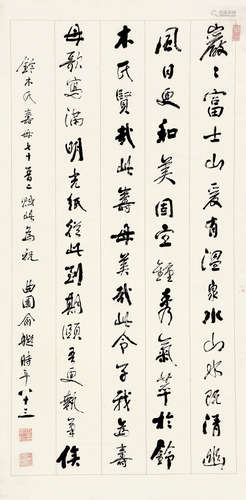 巖〻富士山爰有溫泉水山水既清幽
風日更和美固宜鍾秀氣萃於鈴
木氏賢哉此壽母美哉此令子我為壽
母歌寫滿明光紙從此到期頤吾更執筆俟
鈴木氏壽母七十晉二賦此為祝
曲園俞樾時年八十三